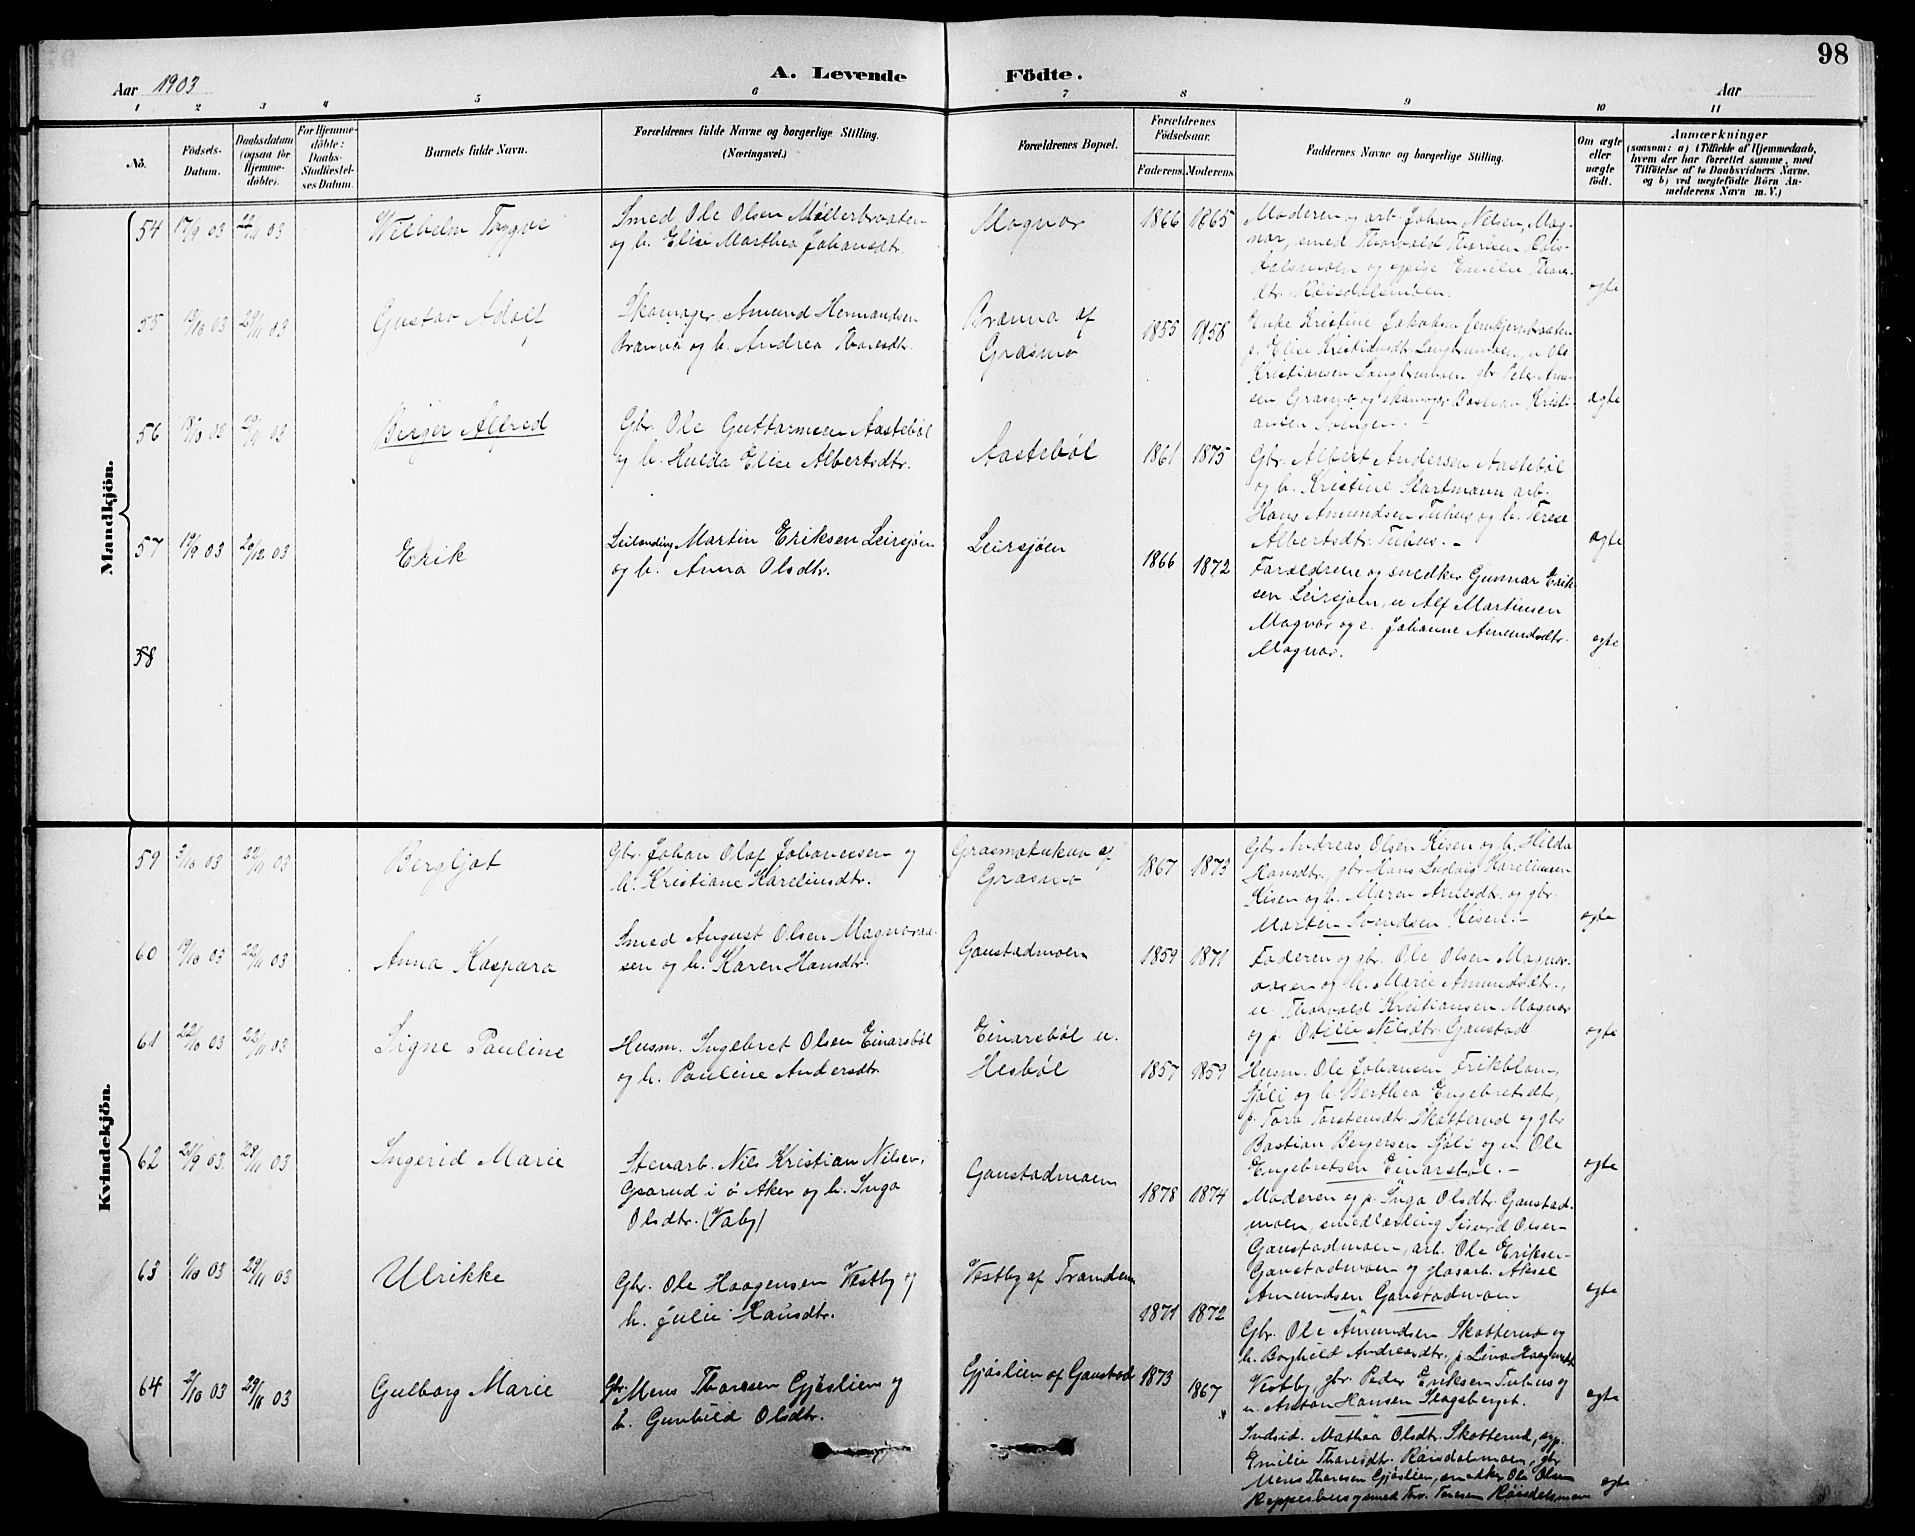 98
Aar 1903
A. Levende Födte.
Aar
1 2 3 4 5 6 7 8 9 10 11
No.
Födsels-Datum.
Daabsdatum (ogsaa for Hjemme-döbte).
For Hjemme-döbte: Daabs-Stadfæstel-ses Datum.
Barnets fulde Navn.
Forældrenes fulde Navne og borgerlige Stilling. (Næringsvei.)
Forældrenes Bopæl.
Forældrenes Födselsaar.
Faderens. Moderens.
Faddernes Navne og borgerlige Stilling.
Om ægte eller uægte födt.
Anmærkninger
(saasom: a) i Tilfælde af Hjemmedaab, hvem der har forrettet samme, med Tilföielse af to Daabsvidners Navne, og b) ved uægtefödte Börn An-melderens Navn m. V.)
Mandkjön.
54 17/9 03 22/11 03 Wilhelm Trygve
Smed Ole Olsen
og h. Elise Marthea Johansdtr.
Magnor 1866 1865
Moderen og arb. Johan Nilsen, Mag-
nor, smed Thorvald Thoresen Røis-
dalsmoen og pige Emilie Thores-
dtr. Røisdalsmoen. ægte
55 29/11 03 Gustav Adolf
Skomager Amund Hermandsen
Brænna og h. Andrea Thoresdtr.
Brænna af
Græsmo
1855 1858
Enke Kristine Jakobsen
p. Elise Kristiansdtr. Langbrumoen, u. Ole
Kristiansen Langbrumoen, gbr. Peter Amund-
sen Græsmo og skomager Bastian Kristi-
ansen ægte
56 18/10 03 29/11 03 Birger Alfred
Gbr. Ole Guttormsen Aastebøl
og h. Hulda Elise Albertsdtr.
Aastebøl 1861 1875
Gbr. Albert Andersen Aastebøl
og h. Kristine Hartmann arb.
Hans Amundsen Tuhus og h. Terese
Albertsdtr. Tuhus. - ægte
57 19/9 03 20/12 03 Erik
Leilending Martin Eriksen Leirsjøen
og h. Anna Olsdtr.
Leirsjøen 1866 1872
Forældrene og snedker Gunnar Erik-
sen Leirsjøen, u. Alf Martinsen
Magnor og p. Johanne Amundsdtr.
Magnor. ægte
58
Kvindekjön.
59 3/10 03 22/11 03 Bergljot
Gbr. Johan Olaf Johannesen og
h. Kristiane Karelinsdtr.
af
Græsmo
1867 1873
Gbr. Andreas Olsen Kisen og h. Hilda
Hansdtr., gbr. Hans Ludvig Karelinsen
Kisen og h. Maren Arnesdtr. og gbr.
Martin Svendsen Kisen. - ægte
60 9/10 03 22/11 03 Anna Kaspara
Smed August Olsen Magnoraa-
sen og h. Karen Hansdtr.
Gaustadmoen 1859 1871
Faderen og gbr. Ole Olsen Magnor-
aasen og h. Marie Amundsdtr.,
u. Thorvald Kristiansen Magnor
og p. Otilie Nilsdtr. Gaustad ægte
61 22/10 03 22/11 03 Signe Pauline
Husm. Ingebret Olsen Einarsbøl
og h. Pauline Andersdtr.
Einarsbøl u.
Hesbøl
1857 1859
Husm. Ole Johansen
Sjøli og h. Berthea Engebretsdtr.,
p. Tora Torstensdtr. Skotterud og gbr.
Bastian Bergersen Sjøli og u. Ole
Engebretsen Einarsbøl. - ægte
62 21/9 03 29/11 03 Ingerid Marie
Stenarb. Nils Kristian Nilsen,
Grorud i ø. Aker og h. Inga
Olsdtr. (Vaby)
Gaustadmoen 1878 1874
Moderen og p. Inga Olsdtr. Gaustad-
moen, smedlesling Sigurd Olsen
Gaustadmoen, arb. Ole Eriksen
Gaustadmoen og glasarb. Aksel
Amundsen Gaustadmoen ægte
63 1/10 03 29/11 03 Ulrikke
Gbr. Ole Haagensen Vestby og
h. Julie Hansdtr.
Vestby af Trandem
1871 1872
Gbr. Ole Amundsen Skotterud og
h. Borghild Andreasdtr. p. Lina Haagensdtr.
Vestby, gbr. Peder Eriksen Tuhus og
u. Anton Hansen Skogsberget. ægte
64 2/10 03 29/11 03 Gulborg Marie
Gbr. Mons Thoresen Gjøslien og
h. Gunhild Olsdtr.
Gjøslien af Gaustad 1873 1867
Indsid. Mathea Olsdtr. Skotterud, og p.
Emilie Thoresdtr. Røisdalsmoen, gbr.
Mons Thoresen Gjøslien, snedker Ole Olsen
og smed Tor. Toresen Røisdalsmoen ægte